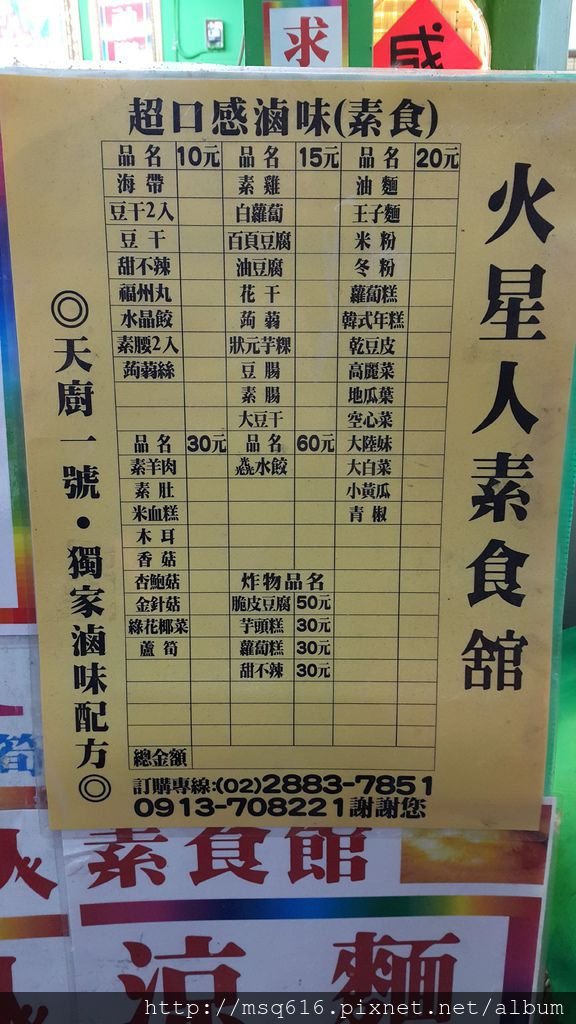 求
感
超口感滷味(素食)
品名 10元 品名 15元 品名 20元
海帶 素雞 油麵
豆干2入 白蘿蔔 王子麵
豆干 百頁豆腐 米粉
甜不辣 油豆腐 冬粉
福州丸 花干 蘿蔔糕
水晶餃 蒟蒻 韓式年糕
素腰2入 狀元芋粿 乾豆皮
蒟蒻絲 豆腸 高麗菜
素腸 地瓜葉
大豆干 空心菜
品名 30元 品名 60元 大陸妹
素羊肉 水餃 大白菜
素肚 小黃瓜
米血糕 青椒
木耳
香菇
杏鮑菇 炸物品名
金針菇 脆皮豆腐 50元
綠花椰菜 芋頭糕 30元
蘆筍 蘿蔔糕 30元
甜不辣 30元
總金額
訂購專線:(02)2883-7851
0913-708221謝謝您
火星人素食舘
◎天廚一號・獨家滷味配方◎
筍
人素食館
涼麵
http://msq616.pixnet.net/album